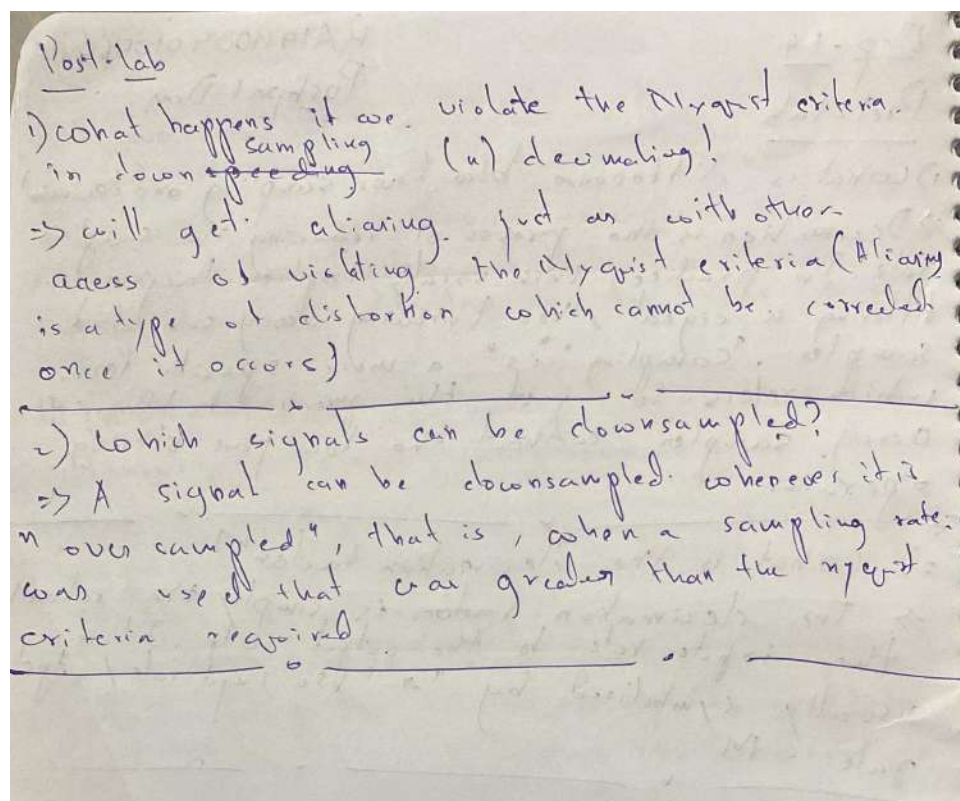 Post-lab
1) what happens if we violate the Nyquist criteria
sampling
in down speeding (or) decimating?
=> will get aliasing just as with other
cases of violating the Nyquist criteria (Aliasing
is a type of distortion which cannot be corrected
once it occurs)
2) Which signals can be downsampled?
=> A signal can be downsampled whenever it is
"over sampled", that is, when a sampling rate
was used that was greater than the nyquist
criteria required.